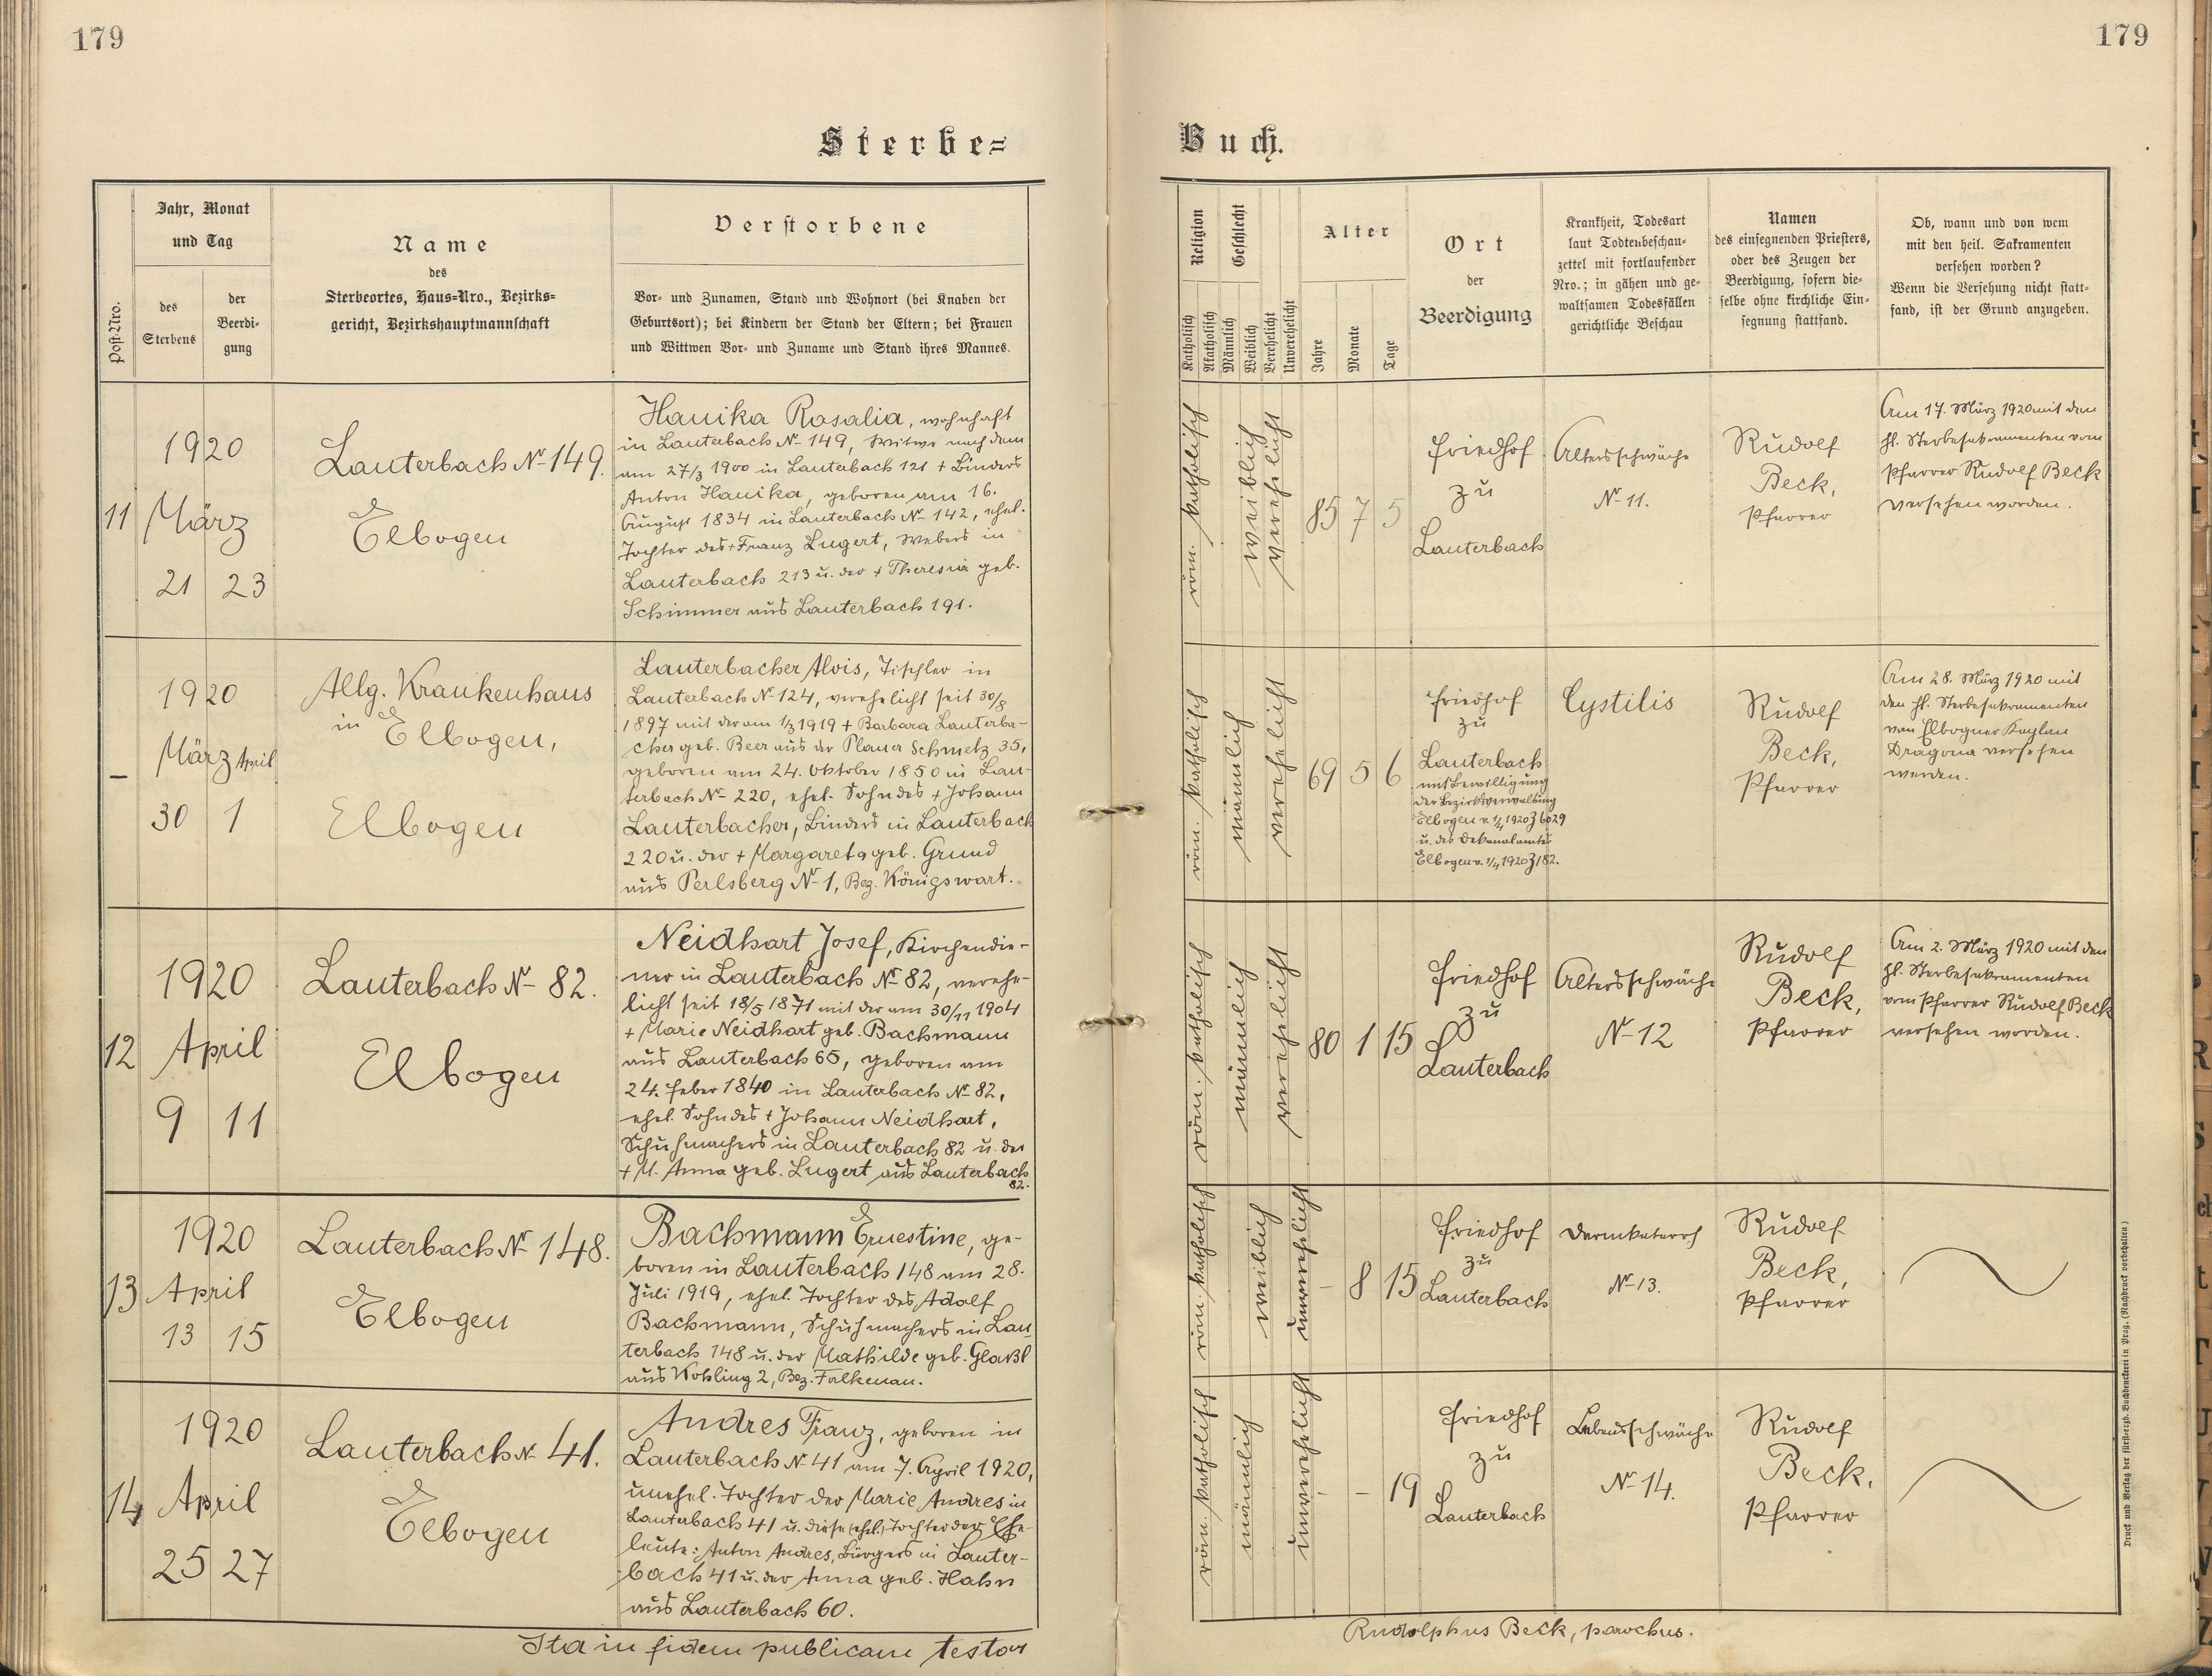 179
179
Sterbe=
Buch.
Post-Nro.
Jahr, Monat
und Tag
des
Sterbens
der
Beerdi-
gung
Name
des
Sterbeortes, Haus=Nro., Bezirks=
gericht, Bezirkshauptmannschaft
Verstorbene
Vor- und Zunamen, Stand und Wohnort (bei Knaben der
Geburtsort); bei Kindern der Stand der Eltern; bei Frauen
und Wittwen Vor- und Zuname und Stand ihres Mannes.
Religion
Katholisch
Akatholisch
Geschlecht
Männlich
Weiblich
Verehelicht
Unverehelicht
Alter
Jahre
Monate
Tage
Ort
der
Beerdigung
Krankheit, Todesart
laut Todtenbeschau-
zettel mit fortlaufender
Nro.; in gähen und ge-
waltsamen Todesfällen
gerichtliche Beschau
Namen
des einsegnenden Priesters,
oder des Zeugen der
Beerdigung, sofern die-
selbe ohne kirchliche Ein-
segnung stattfand.
Ob, wann und von wem
mit den heil. Sakramenten
versehen worden?
Wenn die Versehung nicht statt-
fand, ist der Grund anzugeben.
11
1920
März
21 23
Lauterbach No 149.
Elbogen
Hanika Rosalia, wohnhaft
in Lauterbach No 149, Witwe nach dem
am 27/3 1900 in Lauterbach 121 + Binders
Anton Hanika, geboren am 16.
August 1834 in Lauterbach No 142, ehel.
Tochter des + Franz Lugert, Webers in
Lauterbach 213 u. der + Theresia geb.
Schimmer aus Lauterbach 191.
röm. katholisch
weiblich
verehelicht
85 7 5
Friedhof
zu
Lauterbach
Altersschwäche
No 11.
Rudolf
Beck,
Pfarrer
Am 17. März 1920 mit den
hl. Sterbesakramenten vom
Pfarrer Rudolf Beck
versehen worden.
–
1920
März April
30 1
Allg. Krankenhaus
in Elbogen,
Elbogen
Lauterbacher Alois, Tischler in
Lauterbach No 124, verehelicht seit 30/8
1897 mit der am 1/3 1919 + Barbara Lauterba-
cher geb. Beer aus der Planer Schmelz 35,
geboren am 24. Oktober 1850 in Lau-
terbach No 220, ehel. Sohn des + Johann
Lauterbacher, Binders in Lauterbach
220 u. der + Margareta geb. Grund
aus Perlsberg No 1, Bez. Königswart.
röm. katholisch
männlich
verehelicht
69 5 6
Friedhof
zu
Lauterbach
mit Bewilligung
der Bezirksverwaltung
Elbogen v. 1/4 1920 Z 6029
u. des Dekanalamtes
Elbogen v. 1/4 1920 Z 182.
Cystilis
Rudolf
Beck,
Pfarrer
Am 28. März 1920 mit
den hl. Sterbesakramenten
vom Elbogner Kaplan
Dragona versehen
worden.
12
1920
April
9 11
Lauterbach No 82.
Elbogen
Neidhart Josef, Kirchendie-
ner in Lauterbach No 82, verehe-
licht seit 18/5 1871 mit der am 30/11 1904
+ Marie Neidhart geb. Bachmann
aus Lauterbach 65, geboren am
24. Feber 1840 in Lauterbach No 82,
ehel. Sohn des + Johann Neidhart,
Schuhmachers in Lauterbach 82 u. der
+ M. Anna geb. Lugert aus Lauterbach
82.
röm. katholisch
männlich
verehelicht
80 1 15
Friedhof
zu
Lauterbach
Altersschwäche
No 12
Rudolf
Beck,
Pfarrer
Am 2. März 1920 mit den
hl. Sterbesakramenten
vom Pfarrer Rudolf Beck
versehen worden.
13
1920
April
13 15
Lauterbach No 148.
Elbogen
Bachmann Ernestine, ge-
boren in Lauterbach 148 am 28.
Juli 1919, ehel. Tochter des Adolf
Bachmann, Schuhmachers in Lau-
terbach 148 u. der Mathilde geb. Glaßl
aus Kohling 2, Bez. Falkenau.
röm. katholisch
weiblich
unverehelicht
– 8 15
Friedhof
zu
Lauterbach
Darmkatarrh
No 13.
Rudolf
Beck,
Pfarrer
14
1920
April
25 27
Lauterbach No 41.
Elbogen
Andres Franz, geboren in
Lauterbach No 41 am 7. April 1920,
unehel. Tochter der Marie Andres in
Lauterbach 41 u. diese (ehel.) Tochter der Ehe-
leute: Anton Andres, Bürgers in Lauter-
bach 41 u. der Anna geb. Hahn
aus Lauterbach 60.
röm. katholisch
männlich
unverehelicht
– – 19
Friedhof
zu
Lauterbach
Lebensschwäche
No 14.
Rudolf
Beck,
Pfarrer
Ita in fidem publicam testor
Rudolphus Beck, parochus.
Druck und Verlag der fürsterzb. Buchdruckerei in Prag. (Nachdruck vorbehalten)